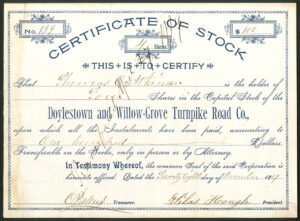 CERTIFICATE OF STOCK
No. 189
$ 100
THIS IS TO CERTIFY
That Thomas is the holder of
Four Shares in the Capital Stock of the
Doylestown and Willow-Grove Turnpike Road Co.,
upon which all the Instalments have been paid, amounting to
Dollars
Transferable on the Books, only in person or by Attorney.
In Testimony Whereof, the common Seal of the said Corporation is
hereunto affixed. Dated the Twenty Eight day of December
Treasurer. Silas Hough President.